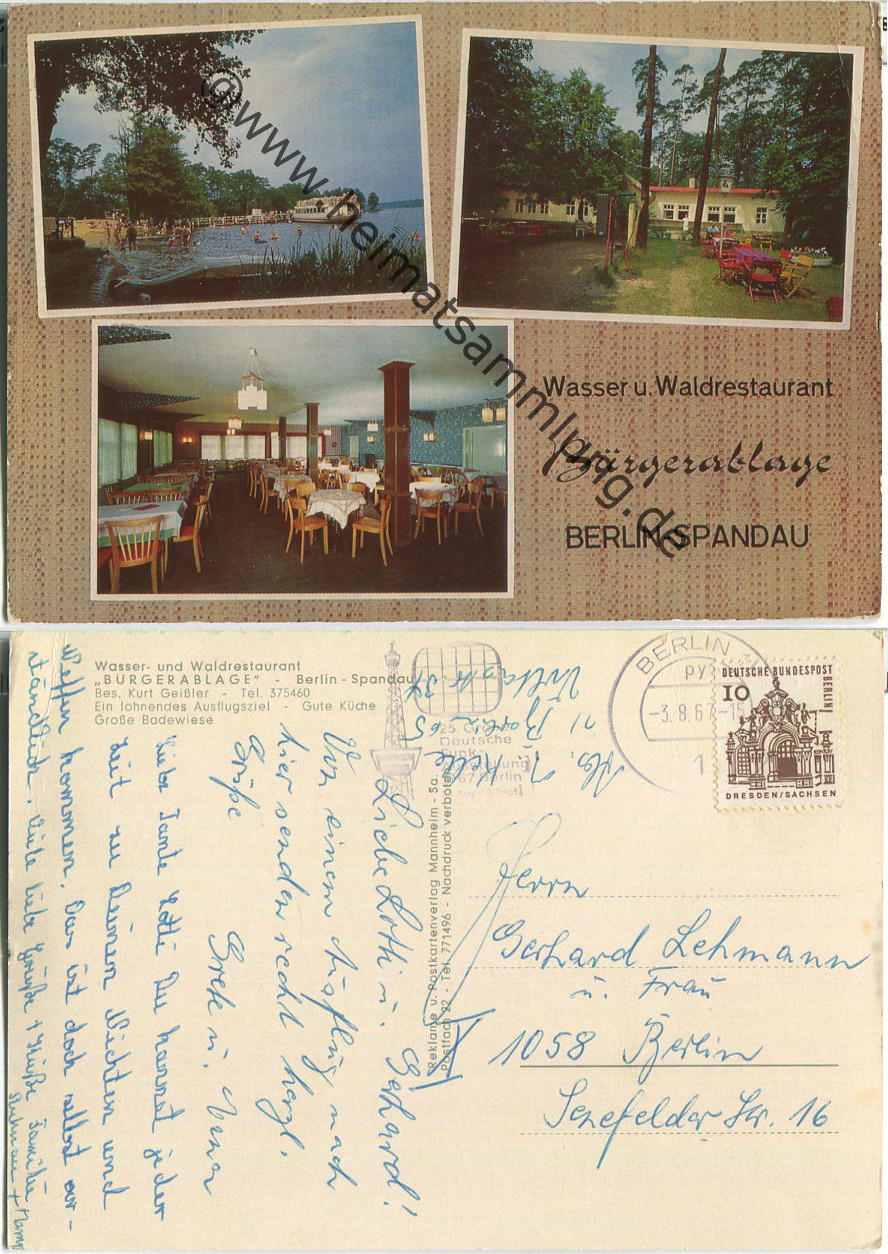 Wasser u. Waldrestaurant
Bürgerablage
BERLIN-SPANDAU
© www.heimatsammlung.de
Wasser- und Waldrestaurant
„BÜRGERABLAGE" - Berlin-Spandau
Bes. Kurt Geißler - Tel. 375460
Ein lohnendes Ausflugsziel - Gute Küche
Große Badewiese
25. Große
Deutsche
Funk-
1967 Berlin
BERLIN
-3.8.67-15
1
DEUTSCHE BUNDESPOST
BERLIN
10
DRESDEN/SACHSEN
Reklame u. Postkartenverlag Mannheim - Sa.
Postfach 22 - Tel. 771496 - Nachdruck verboten
Abs.
1 Berlin 65
Liebe Lotti u. Gerhard!
Von einem Ausflug nach
hier senden recht herzl.
Grüße
Grete u.
Liebe Tante Lotti Du kannst jeder
Zeit zu Deinen Nichten und
Neffen kommen. Das ist doch selbst ver-
ständlich. Viele liebe Grüße + Küße Familie
Herrn
Gerhard Lehmann
u. Frau
1058 Berlin
Senefelder Str. 16